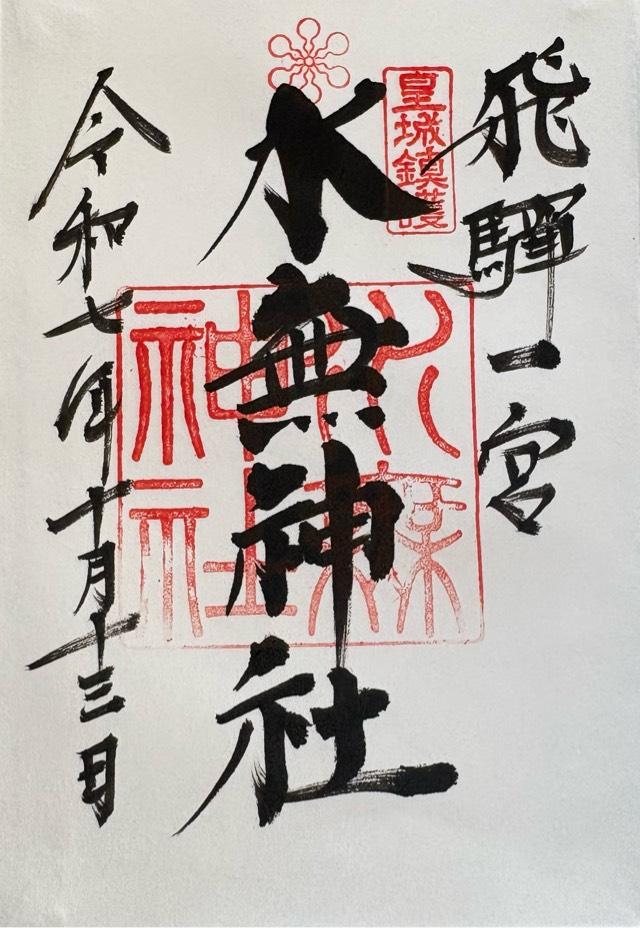 飛騨一宮
皇城鎮護
水無神社
水無神社
令和七年十月十三日